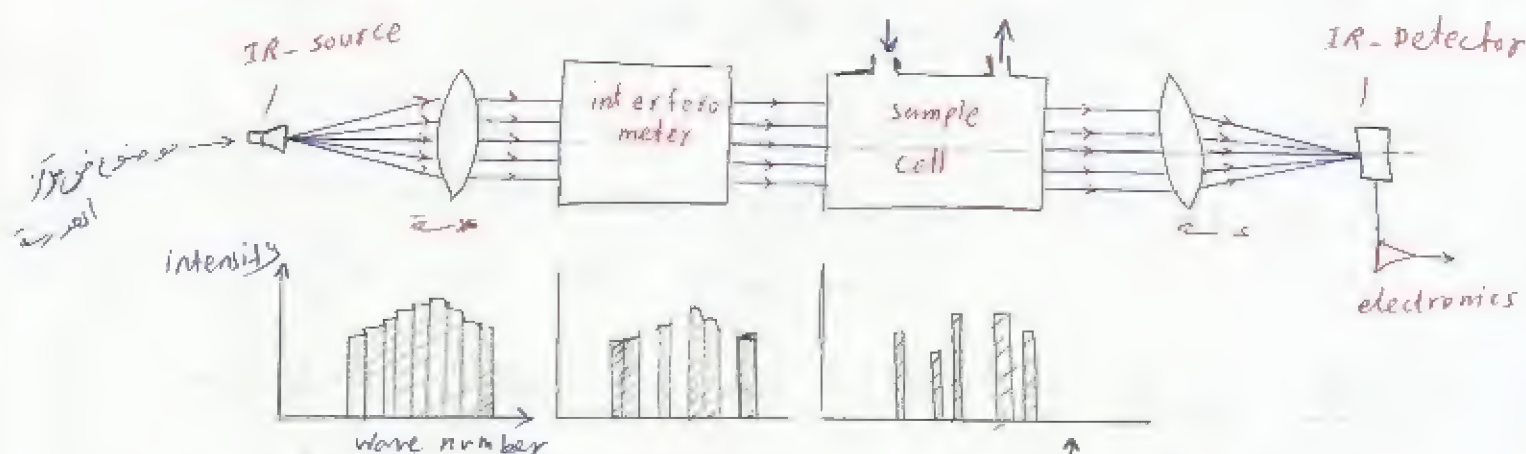 IR-source
IR-Detector
interfero
meter
sample
cell
موضوع في بؤرة
العدسة
intensity
electronics
wave number